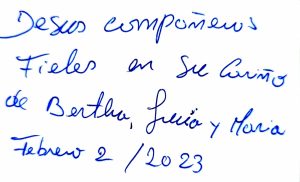 Desus compoñeros
Fieles en Su Cariño
de Bertha, Lucía y Maria
Febrero 2 / 2023